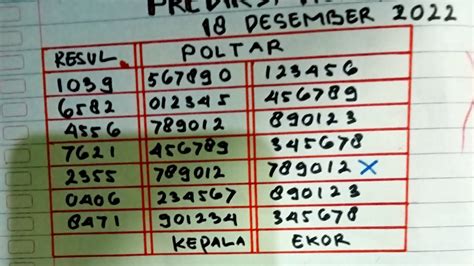 18 DESEMBER 2022
RESUL. POLTAR
1039 567890 123456
6582 012345 456789
4556 789012 890123
7621 456789 345678
2355 789012 789012 X
0406 234567 890123
8471 901234 345678
KEPALA EKOR